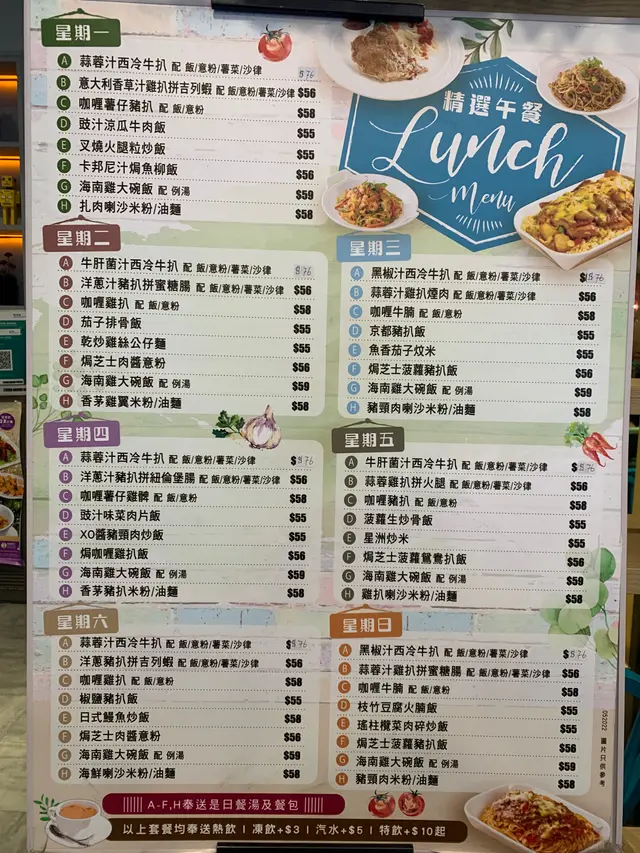 精選午餐
Lunch
Menu
星期一
A 蒜蓉汁西冷牛扒 配 飯/意粉/薯菜/沙律 $76
B 意大利香草汁雞扒拼吉列蝦 配 飯/意粉/薯菜/沙律 $56
C 咖喱薯仔豬扒 配 飯/意粉 $58
D 豉汁涼瓜牛肉飯 $55
E 叉燒火腿粒炒飯 $55
F 卡邦尼汁焗魚柳飯 $56
G 海南雞大碗飯 配 例湯 $59
H 扎肉喇沙米粉/油麵 $58
星期二
A 牛肝菌汁西冷牛扒 配 飯/意粉/薯菜/沙律 $76
B 洋蔥汁豬扒拼蜜糖腸 配 飯/意粉/薯菜/沙律 $56
C 咖喱雞扒 配 飯/意粉 $58
D 茄子排骨飯 $55
E 乾炒雞絲公仔麵 $55
F 焗芝士肉醬意粉 $56
G 海南雞大碗飯 配 例湯 $59
H 香茅雞翼米粉/油麵 $58
星期三
A 黑椒汁西冷牛扒 配 飯/意粉/薯菜/沙律 $76
B 蒜蓉汁雞扒煙肉 配 飯/意粉/薯菜/沙律 $56
C 咖喱牛腩 配 飯/意粉 $58
D 京都豬扒飯 $55
E 魚香茄子炆米 $55
F 焗芝士菠蘿豬扒飯 $56
G 海南雞大碗飯 配 例湯 $59
H 豬頸肉喇沙米粉/油麵 $58
星期四
A 蒜蓉汁西冷牛扒 配 飯/意粉/薯菜/沙律 $76
B 洋蔥汁豬扒拼紐倫堡腸 配 飯/意粉/薯菜/沙律 $56
C 咖喱薯仔雞髀 配 飯/意粉 $58
D 豉汁味菜肉片飯 $55
E XO醬豬頸肉炒飯 $55
F 焗咖喱雞扒飯 $56
G 海南雞大碗飯 配 例湯 $59
H 香茅豬扒米粉/油麵 $58
星期五
A 牛肝菌汁西冷牛扒 配 飯/意粉/薯菜/沙律 $76
B 蒜蓉雞扒拼火腿 配 飯/意粉/薯菜/沙律 $56
C 咖喱豬扒 配 飯/意粉 $58
D 菠蘿生炒骨飯 $55
E 星洲炒米 $55
F 焗芝士菠蘿鴛鴦扒飯 $56
G 海南雞大碗飯 配 例湯 $59
H 雞扒喇沙米粉/油麵 $58
星期六
A 蒜蓉汁西冷牛扒 配 飯/意粉/薯菜/沙律 $76
B 洋蔥豬扒拼吉列蝦 配 飯/意粉/薯菜/沙律 $56
C 咖喱雞扒 配 飯/意粉 $58
D 椒鹽豬扒飯 $55
E 日式鰻魚炒飯 $58
F 焗芝士肉醬意粉 $56
G 海南雞大碗飯 配 例湯 $59
H 海鮮喇沙米粉/油麵 $58
星期日
A 黑椒汁西冷牛扒 配 飯/意粉/薯菜/沙律 $76
B 蒜蓉汁雞扒拼蜜糖腸 配 飯/意粉/薯菜/沙律 $56
C 咖喱牛腩 配 飯/意粉 $58
D 枝竹豆腐火腩飯 $55
E 瑤柱欖菜肉碎炒飯 $55
F 焗芝士菠蘿豬扒飯 $56
G 海南雞大碗飯 配 例湯 $59
H 豬頸肉米粉/油麵 $58
052022 圖片只供參考
A-F,H奉送是日餐湯及餐包
以上套餐均奉送熱飲 | 凍飲+$3 | 汽水+$5 | 特飲+$10起